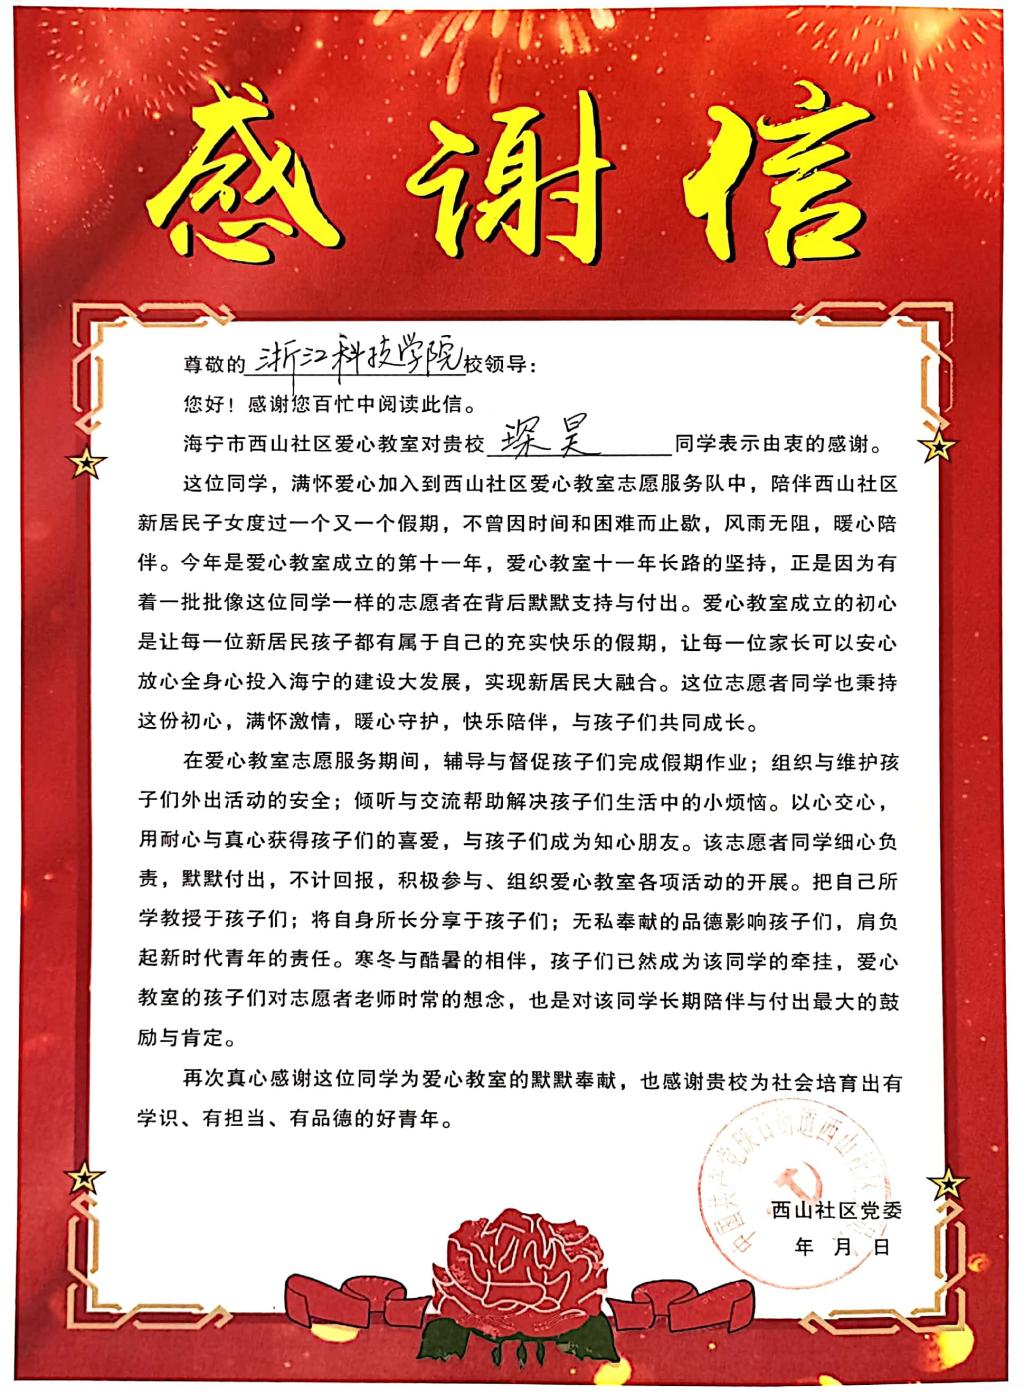 感谢信
尊敬的浙江科技学院校领导：
您好！感谢您百忙中阅读此信。
海宁市西山社区爱心教室对贵校琛昊同学表示由衷的感谢。
这位同学，满怀爱心加入到西山社区爱心教室志愿服务队中，陪伴西山社区
新居民子女度过一个又一个假期，不曾因时间和困难而止歇，风雨无阻，暖心陪
伴。今年是爱心教室成立的第十一年，爱心教室十一年长路的坚持，正是因为有
着一批批像这位同学一样的志愿者在背后默默支持与付出。爱心教室成立的初心
是让每一位新居民孩子都有属于自己的充实快乐的假期，让每一位家长可以安心
放心全身心投入海宁的建设大发展，实现新居民大融合。这位志愿者同学也秉持
这份初心，满怀激情，暖心守护，快乐陪伴，与孩子们共同成长。
在爱心教室志愿服务期间，辅导与督促孩子们完成假期作业；组织与维护孩
子们外出活动的安全；倾听与交流帮助解决孩子们生活中的小烦恼。以心交心，
用耐心与真心获得孩子们的喜爱，与孩子们成为知心朋友。该志愿者同学细心负
责，默默付出，不计回报，积极参与、组织爱心教室各项活动的开展。把自己所
学教授于孩子们；将自身所长分享于孩子们；无私奉献的品德影响孩子们，肩负
起新时代青年的责任。寒冬与酷暑的相伴，孩子们已然成为该同学的牵挂，爱心
教室的孩子们对志愿者老师时常的想念，也是对该同学长期陪伴与付出最大的鼓
励与肯定。
再次真心感谢这位同学为爱心教室的默默奉献，也感谢贵校为社会培育出有
学识、有担当、有品德的好青年。
中国共产党硖石街道西山社区
西山社区党委
年 月 日